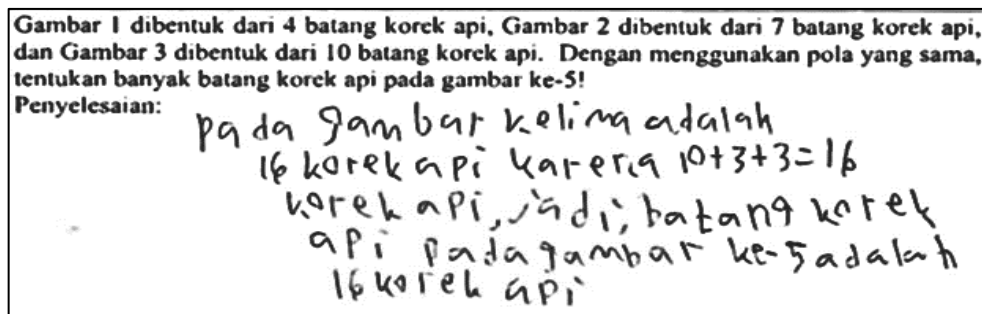 Gambar 1 dibentuk dari 4 batang korek api, Gambar 2 dibentuk dari 7 batang korek api,
dan Gambar 3 dibentuk dari 10 batang korek api. Dengan menggunakan pola yang sama,
tentukan banyak batang korek api pada gambar ke-5!
Penyelesaian:
pada gambar kelima adalah
16 korek api karena 10+3+3=16
korek api, jadi, batang korek
api pada gambar ke-5 adalah
16 korek api